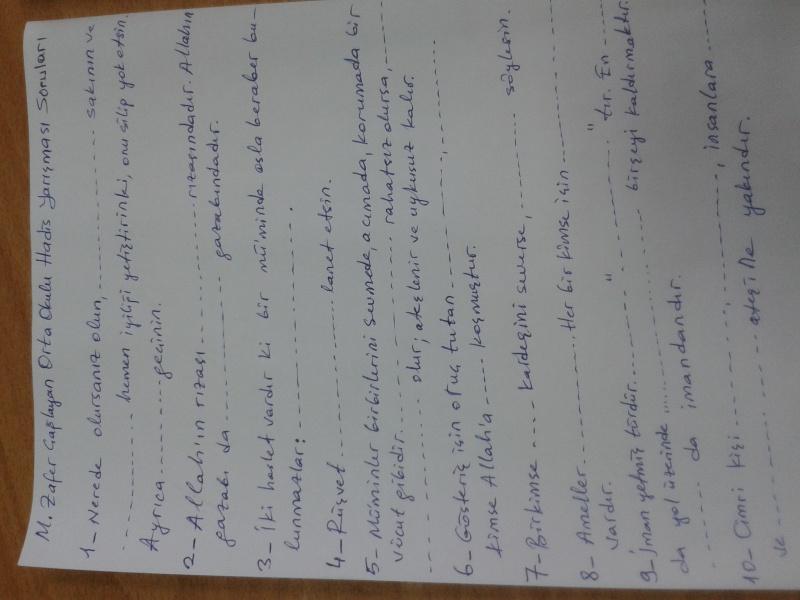 M. Zafer Çağlayan Orta Okulu Hadis Yarışması Soruları
1- Nerede olursanız olun, ............ sakının ve
............ hemen iyiliği yetiştirinki, onu silip yok etsin.
Ayrıca .......... geçinin.
2- Allah'ın rızası ............ rızasındadır. Allahın
gazabı da ............ gazabındadır.
3- İki haslet vardır ki bir mü'minde asla beraber bu-
lunmazlar: ........................
4- Rüşvet .................. lanet etsin.
5- Müminler birbirlerini sevmede, acımada, korumada bir
vücut gibidir. .................. rahatsız olursa, ......
.................. olur; ateşlenir ve uykusuz kalır.
6- Gösteriş için oruç tutan ............, ............
kimse Allah'a ...... koşmuştur.
7- Birkimse .... kardeşini severse, ............ söylesin.
8- Ameller .................. Her bir kimse için ............
vardır.
9- İman yetmiş türdür. ...... " ............ " tır. En ......
da yol üzerinde .................. birşeyi kaldırmaktır.
............ da imandandır.
10- Cimri kişi ............, ............, insanlara ......
ve .................. ateşi ne yakındır.